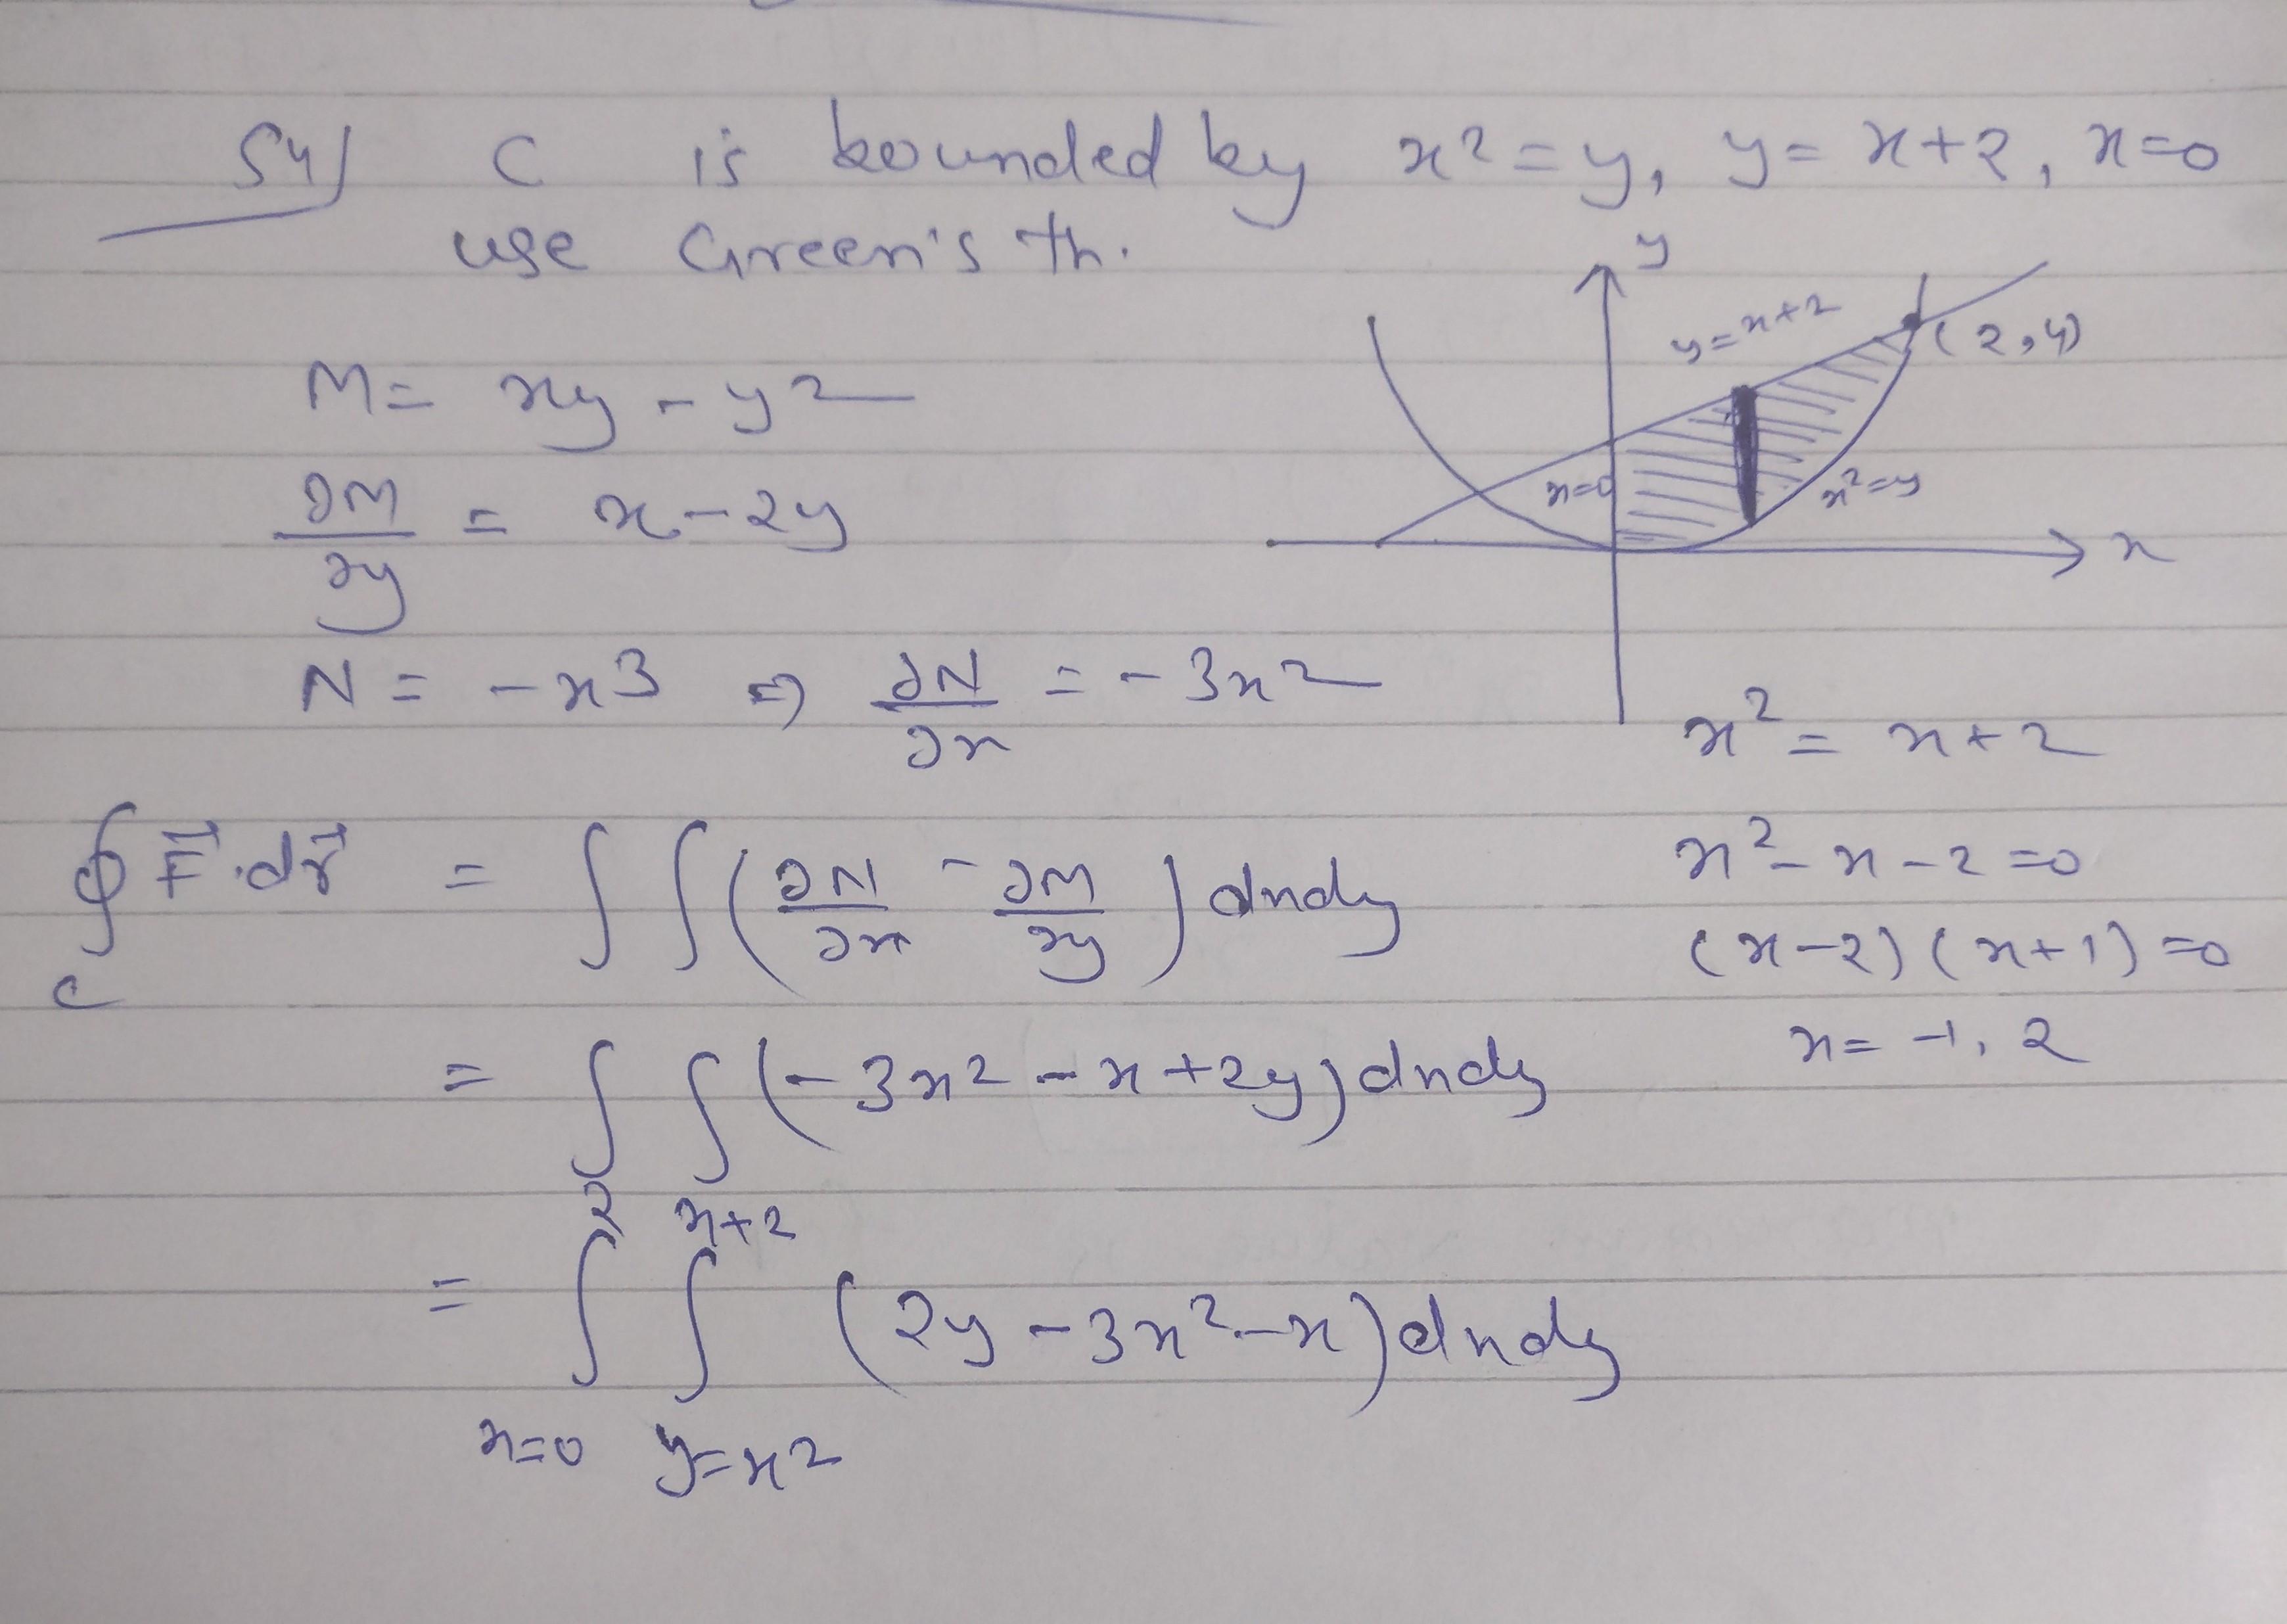 54) C is bounded by x² = y, y = x+2, x=0
use Green's th.
y
y = x+2
(2,4)
x=0
x²=y
x
M = xy - y²
∂M/∂y = x - 2y
N = -x³ ⇒ ∂N/∂x = -3x²
x² = x+2
x² - x - 2 = 0
(x-2)(x+1) = 0
x = -1, 2
∮_C F⃗·dr⃗ = ∫∫(∂N/∂x - ∂M/∂y) dxdy
= ∫∫(-3x² - x + 2y) dxdy
= ∫_{x=0}^{2} ∫_{y=x²}^{x+2} (2y - 3x² - x) dxdy